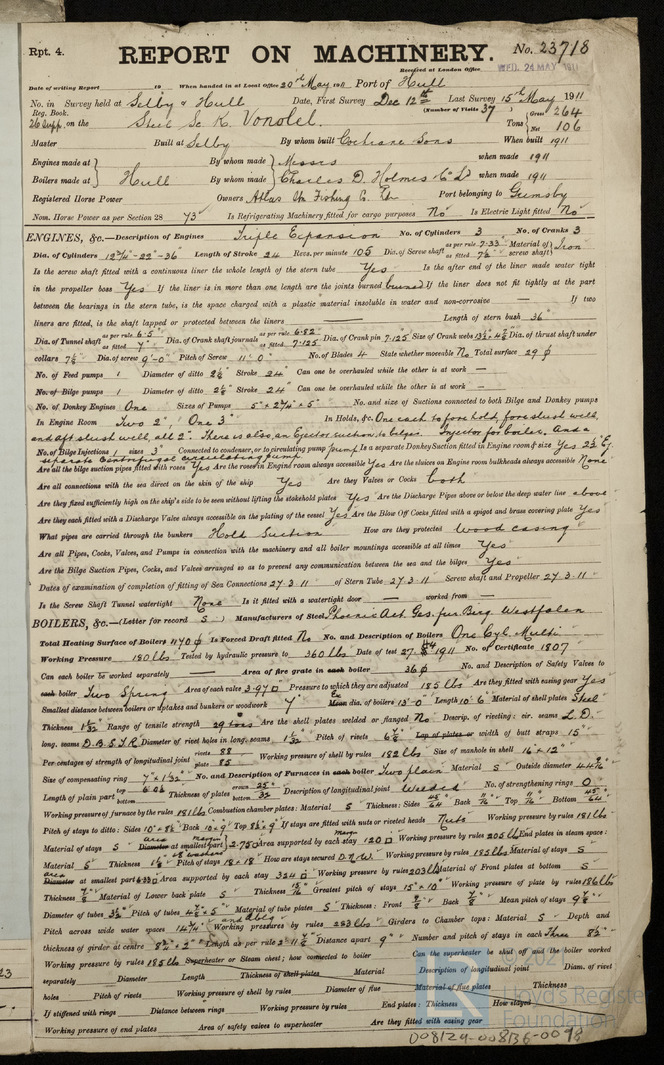 Rpt. 4.
REPORT ON MACHINERY.
No. 23718
Received at London Office WED. 24 MAY 1911
Date of writing Report 19 When handed in at Local Office 20th May 1911 Port of Hull
No. in Survey held at Selby & Hull Date, First Survey Dec 12th Last Survey 15th May 1911
Reg. Book. (Number of Visits 37)
26 Supp. on the Steel Sc K. Vonolel. Tons { Gross 264 Net 106
Master Built at Selby By whom built Cochrane Sons When built 1911
Engines made at By whom made Messrs when made 1911
Boilers made at } Hull By whom made Charles D. Holmes & Co Ld when made 1911
Registered Horse Power Owners Atlas Stm Fishing Co. Ltd Port belonging to Grimsby
Nom. Horse Power as per Section 28 73 Is Refrigerating Machinery fitted for cargo purposes No Is Electric Light fitted No
ENGINES, &c.—Description of Engines Triple Expansion No. of Cylinders 3 No. of Cranks 3
Dia. of Cylinders 12¾"-22"-36 Length of Stroke 24 Revs. per minute 105 Dia. of Screw shaft as per rule 7.33 as fitted 7½ Material of screw shaft } Iron
Is the screw shaft fitted with a continuous liner the whole length of the stern tube Yes Is the after end of the liner made water tight
in the propeller boss Yes If the liner is in more than one length are the joints burned burned If the liner does not fit tightly at the part
between the bearings in the stern tube, is the space charged with a plastic material insoluble in water and non-corrosive — If two
liners are fitted, is the shaft lapped or protected between the liners — Length of stern bush 36"
Dia. of Tunnel shaft as per rule 6.5 as fitted 7" Dia. of Crank shaft journals as per rule 6.82 as fitted 7.125 Dia. of Crank pin 7.125 Size of Crank webs Dia. of thrust shaft under
collars 7½ Dia. of screw 9'-0" Pitch of Screw 11'-0" No. of Blades 4 State whether moveable No Total surface 29
No. of Feed pumps 1 Diameter of ditto 2½ Stroke 24" Can one be overhauled while the other is at work —
No. of Bilge pumps 1 Diameter of ditto 2½ Stroke 24" Can one be overhauled while the other is at work —
No. of Donkey Engines One Sizes of Pumps 5" × 2¾" × 5" No. and size of Suctions connected to both Bilge and Donkey pumps
In Engine Room Two 2", One 3" In Holds, &c. One each to fore hold, fore slush well,
and aft slush well, all 2". There is also an Ejector suction to bilges. Injector for boiler. And a
separate centrifugal circulating pump
No. of Bilge Injections 1 sizes 3" Connected to condenser, or to circulating pump pump Is a separate Donkey Suction fitted in Engine room & size Yes 2½" Ej.
Are all the bilge suction pipes fitted with roses Yes Are the roses in Engine room always accessible Yes Are the sluices on Engine room bulkheads always accessible None
Are all connections with the sea direct on the skin of the ship Yes Are they Valves or Cocks both
Are they fixed sufficiently high on the ship's side to be seen without lifting the stokehold plates Yes Are the Discharge Pipes above or below the deep water line above
Are they each fitted with a Discharge Valve always accessible on the plating of the vessel Yes Are the Blow Off Cocks fitted with a spigot and brass covering plate Yes
What pipes are carried through the bunkers Hold Suction How are they protected Wood casing
Are all Pipes, Cocks, Valves, and Pumps in connection with the machinery and all boiler mountings accessible at all times Yes
Are the Bilge Suction Pipes, Cocks, and Valves arranged so as to prevent any communication between the sea and the bilges Yes
Dates of examination of completion of fitting of Sea Connections 27.3.11 of Stern Tube 27.3.11 Screw shaft and Propeller 27.3.11
Is the Screw Shaft Tunnel watertight None Is it fitted with a watertight door — worked from —
BOILERS, &c.—(Letter for record S) Manufacturers of Steel Phoenix Act. Ges. fur Berg. Westfalen
Total Heating Surface of Boilers 1170 Is Forced Draft fitted No No. and Description of Boilers One Cyl. Multi
Working Pressure 180 lbs Tested by hydraulic pressure to 360 lbs Date of test 27. 1911 No. of Certificate 1807
Can each boiler be worked separately — Area of fire grate in each boiler 36 No. and Description of Safety Valves to
each boiler Two Spring Area of each valve 3.97 Pressure to which they are adjusted 185 lbs Are they fitted with easing gear Yes
Smallest distance between boilers or uptakes and bunkers or woodwork 7" Mean dia. of boilers 13'-0" Length 10'-6" Material of shell plates Steel
Thickness 1 1/32 Range of tensile strength 29 tons Are the shell plates welded or flanged No Descrip. of riveting: cir. seams L.D.
long. seams D.B.S.T.R. Diameter of rivet holes in long. seams 1 1/32 Pitch of rivets 6⅞ Lap of plates or width of butt straps 15"
Per centages of strength of longitudinal joint rivets 88 plate 85 Working pressure of shell by rules 182 lbs Size of manhole in shell 16" × 12"
Size of compensating ring 7" × 1 1/32" No. and Description of Furnaces in each boiler Two plain Material S Outside diameter
Length of plain part top bottom Thickness of plates crown bottom Description of longitudinal joint Welded No. of strengthening rings 0
Working pressure of furnace by the rules 181 lbs Combustion chamber plates: Material S Thickness: Sides Back Top Bottom
Pitch of stays to ditto: Sides Back Top If stays are fitted with nuts or riveted heads Nuts Working pressure by rules 181 lbs
Material of stays S Diameter at smallest part 2.75 Area supported by each stay 120 Working pressure by rules 205 lbs End plates in steam space:
Material S Thickness Pitch of stays 18 × 18 How are stays secured D.N.W. Working pressure by rules 185 lbs Material of stays S
Diameter at smallest part Area supported by each stay 324 Working pressure by rules 203 lbs Material of Front plates at bottom S
Thickness Material of Lower back plate S Thickness Greatest pitch of stays 15" × 10" Working pressure of plate by rules 186 lbs
Diameter of tubes 3½ Pitch of tubes Material of tube plates S Thickness: Front Back Mean pitch of stays
Pitch across wide water spaces 14¾" Working pressures by rules 233 lbs Girders to Chamber tops: Material S Depth and
thickness of girder at centre Length as per rule Distance apart 9" Number and pitch of stays in each Three 8½"
Working pressure by rules 185 lbs Superheater or Steam chest; how connected to boiler Can the superheater be shut off and the boiler worked
separately Diameter Length Thickness of shell plates Material Description of longitudinal joint Diam. of rivet
holes Pitch of rivets Working pressure of shell by rules Diameter of flue Material of flue plates Thickness
If stiffened with rings Distance between rings Working pressure by rules End plates: Thickness How stayed
Working pressure of end plates Area of safety valves to superheater Are they fitted with easing gear
© 2021
Lloyd's Register
Foundation
008129-008136-0098
23